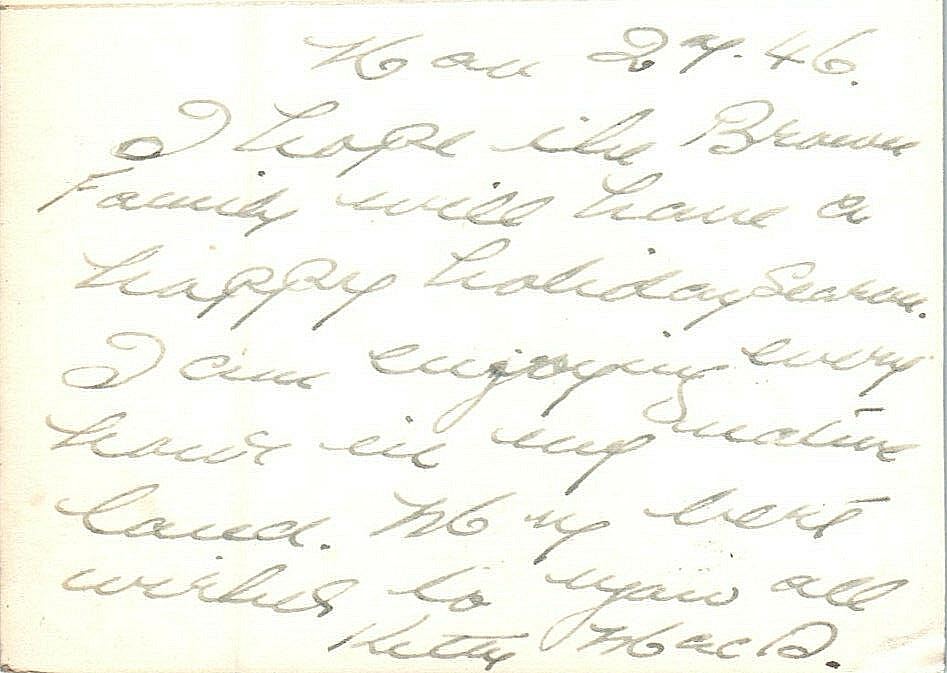 Nov 27. 46.
I hope the Brown
Family will have a
happy holiday Season.
I am enjoying every
hour in my native
land. My best
wishes to you all
Kitty MacD.